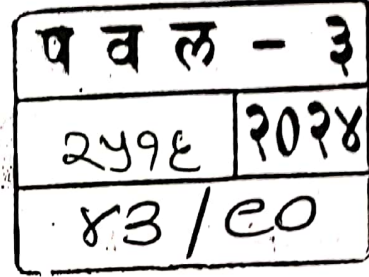 प व ल - ३
२५१६ २०२४
४३/९०